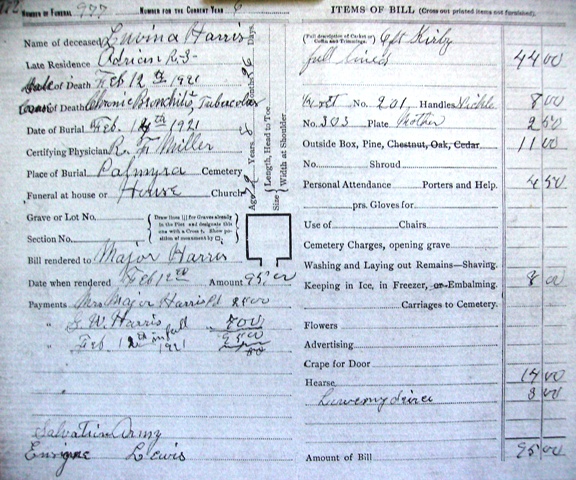 NUMBER OF FUNERAL 977 NUMBER FOR THE CURRENT YEAR 6
Name of deceased Luvina Harris
Late Residence Adrian R-3-
Date of Death Feb 12th 1921
Cause of Death Chronic Bronchitis, Tubercolar
Date of Burial Feb. 14th 1921
Certifying Physician R. F. Miller
Place of Burial Palmyra Cemetery
Funeral at house or House Church
Age Years, Months, Days.
Size { Length, Head to Toe
Width at Shoulder
Grave or Lot No.
Section No.
Draw lines for Graves already in the Plot and designate this one with a Cross †. Show position of monument by
Bill rendered to Major Harris
Date when rendered Feb 12th Amount 95.00
Payments Mrs. Major Harris Pd
" J. W. Harris 700
" Feb. 12th in full
1921
Salvation Army
Lewis
ITEMS OF BILL (Cross out printed items not furnished).
(Full description of Casket or Coffin and Trimmings. 6ft Kirby
full lined 44 00
No. 201, Handles Nickle 8 00
No. 303 Plate Mother 2 50
Outside Box, Pine, Chestnut, Oak, Cedar 11 00
No. Shroud
Personal Attendance Porters and Help. 4 50
prs. Gloves for
Use of Chairs
Cemetery Charges, opening grave
Washing and Laying out Remains—Shaving.
Keeping in Ice, in Freezer, or Embalming. 8 00
Carriages to Cemetery.
Flowers
Advertising
Crape for Door
Hearse 14 00
3 00
Amount of Bill 95 00